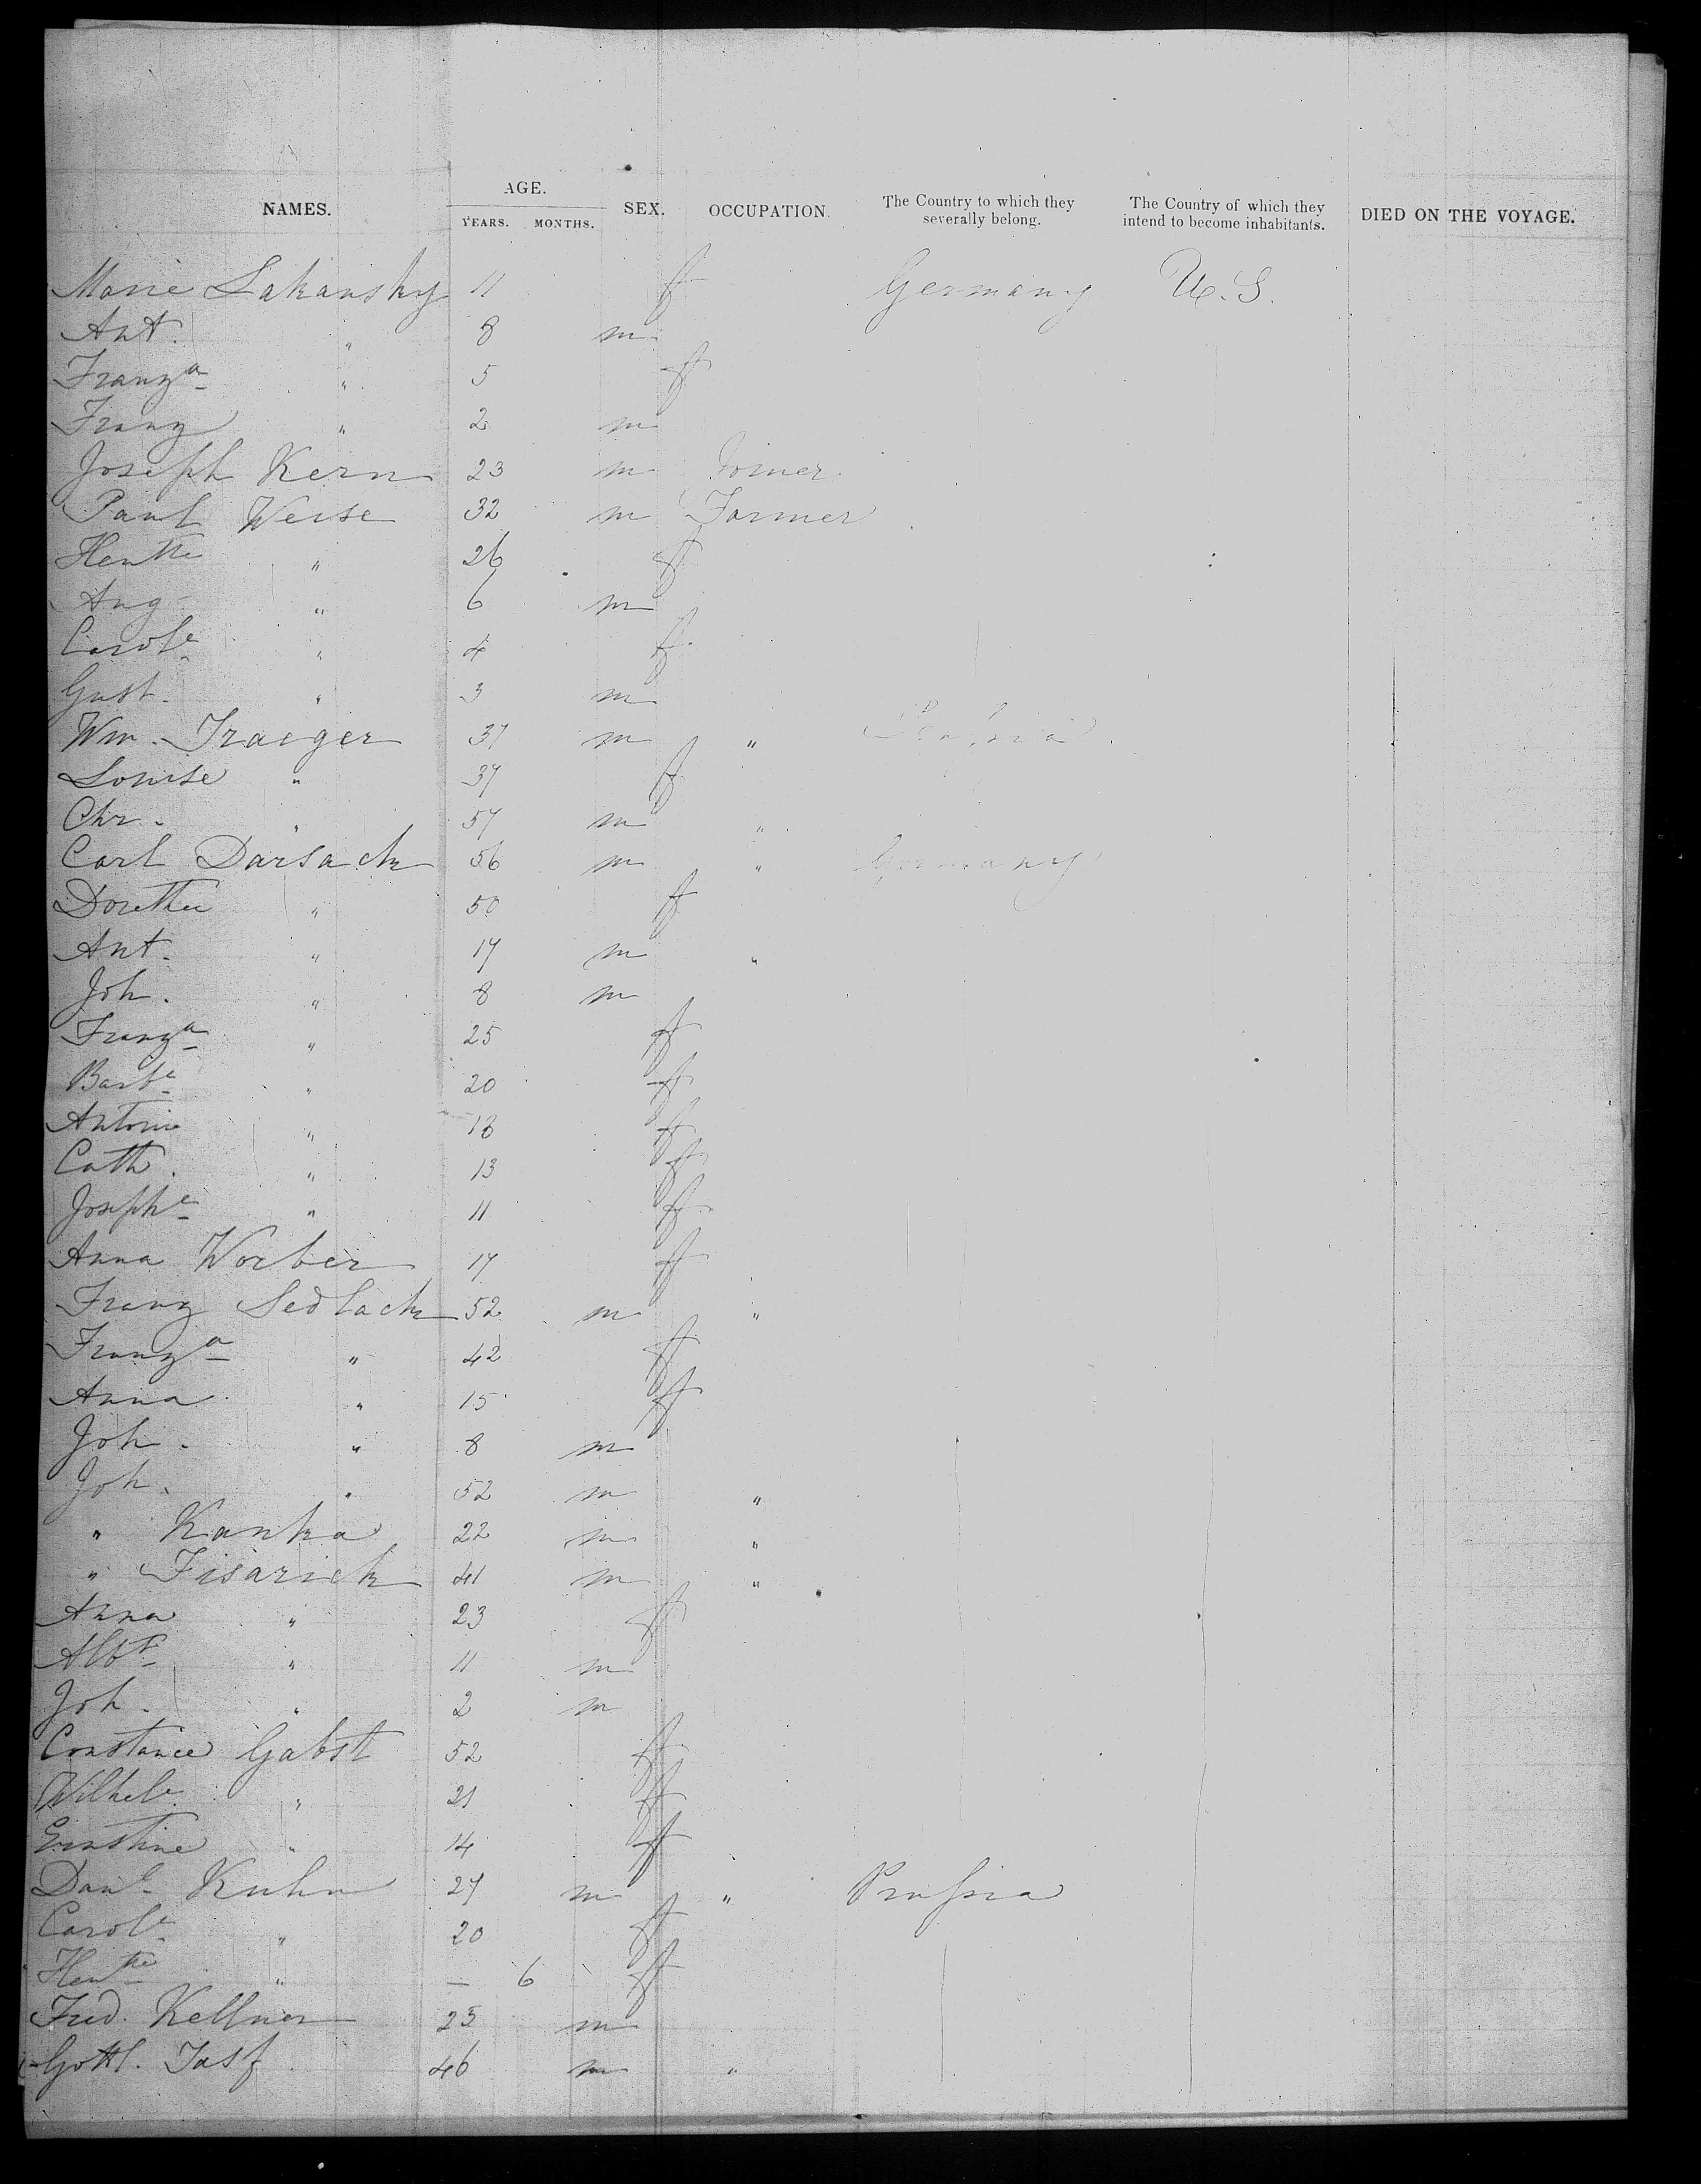 NAMES. AGE. YEARS. MONTHS. SEX. OCCUPATION. The Country to which they severally belong. The Country of which they intend to become inhabitants. DIED ON THE VOYAGE.
Marie Lakansky 11 f Germany U.S.
Ant. " 8 m
Franza " 5 f
Franz " 2 m
Joseph Kern 23 m Joiner
Paul Weise 32 m Farmer
Hentte " 26 f
Aug " 6 m
Carole " 4 f
Gust. " 3 m
Wm. Traeger 37 m " Prussia
Louise " 37 f
Chr. " 57 m "
Carl Darsack 56 m " Germany
Dorethee " 50 f
Ant. " 17 m "
Joh. " 8 m
Franza " 25 f
Barbe " 20 f
Antonie " 18 f
Cath. " 13 f
Josephe " 11 f
Anna Worber 17 f
Franz Sedlack 52 m "
Franza " 42 f
Anna " 15 f
Joh. " 8 m
Joh. " 52 m "
" Kanka 22 m "
" Fisarick 41 m "
Anna " 23 f
Albt " 11 m
Joh. " 2 m
Constance Gabst 52 f
Wilhele " 21 f
Ernstine " 14 f
Danl Kuhn 27 m " Prussia
Carole " 20 f
Hentte " — 6 f
Fred. Kellner 25 m
Gottl. 46 m "